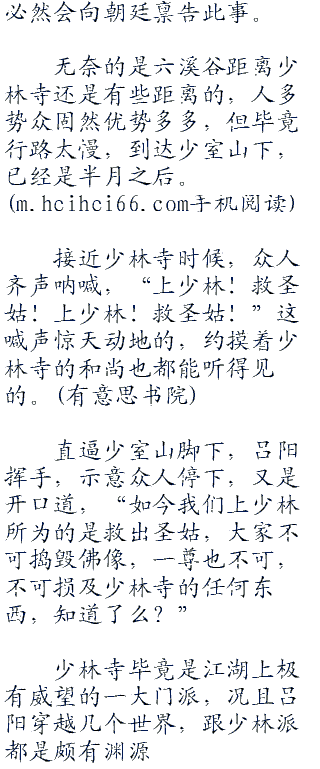 必然会向朝廷禀告此事。
无奈的是六溪谷距离少
林寺还是有些距离的，人多
势众固然优势多多，但毕竟
行路太漫，到达少室山下，
已经是半月之后。
(m.hcihci66.com手机阅读)
接近少林寺时候，众人
齐声呐喊，“上少林！救圣
姑！上少林！救圣姑！”这
喊声惊天动地的，约摸着少
林寺的和尚也都能听得见
的。(有意思书院)
直逼少室山脚下，吕阳
挥手，示意众人停下，又是
开口道，“如今我们上少林
所为的是救出圣姑，大家不
可捣毁佛像，一尊也不可，
不可损及少林寺的任何东
西，知道了么？”
少林寺毕竟是江湖上极
有威望的一大门派，况且吕
阳穿越几个世界，跟少林派
都是颇有渊源